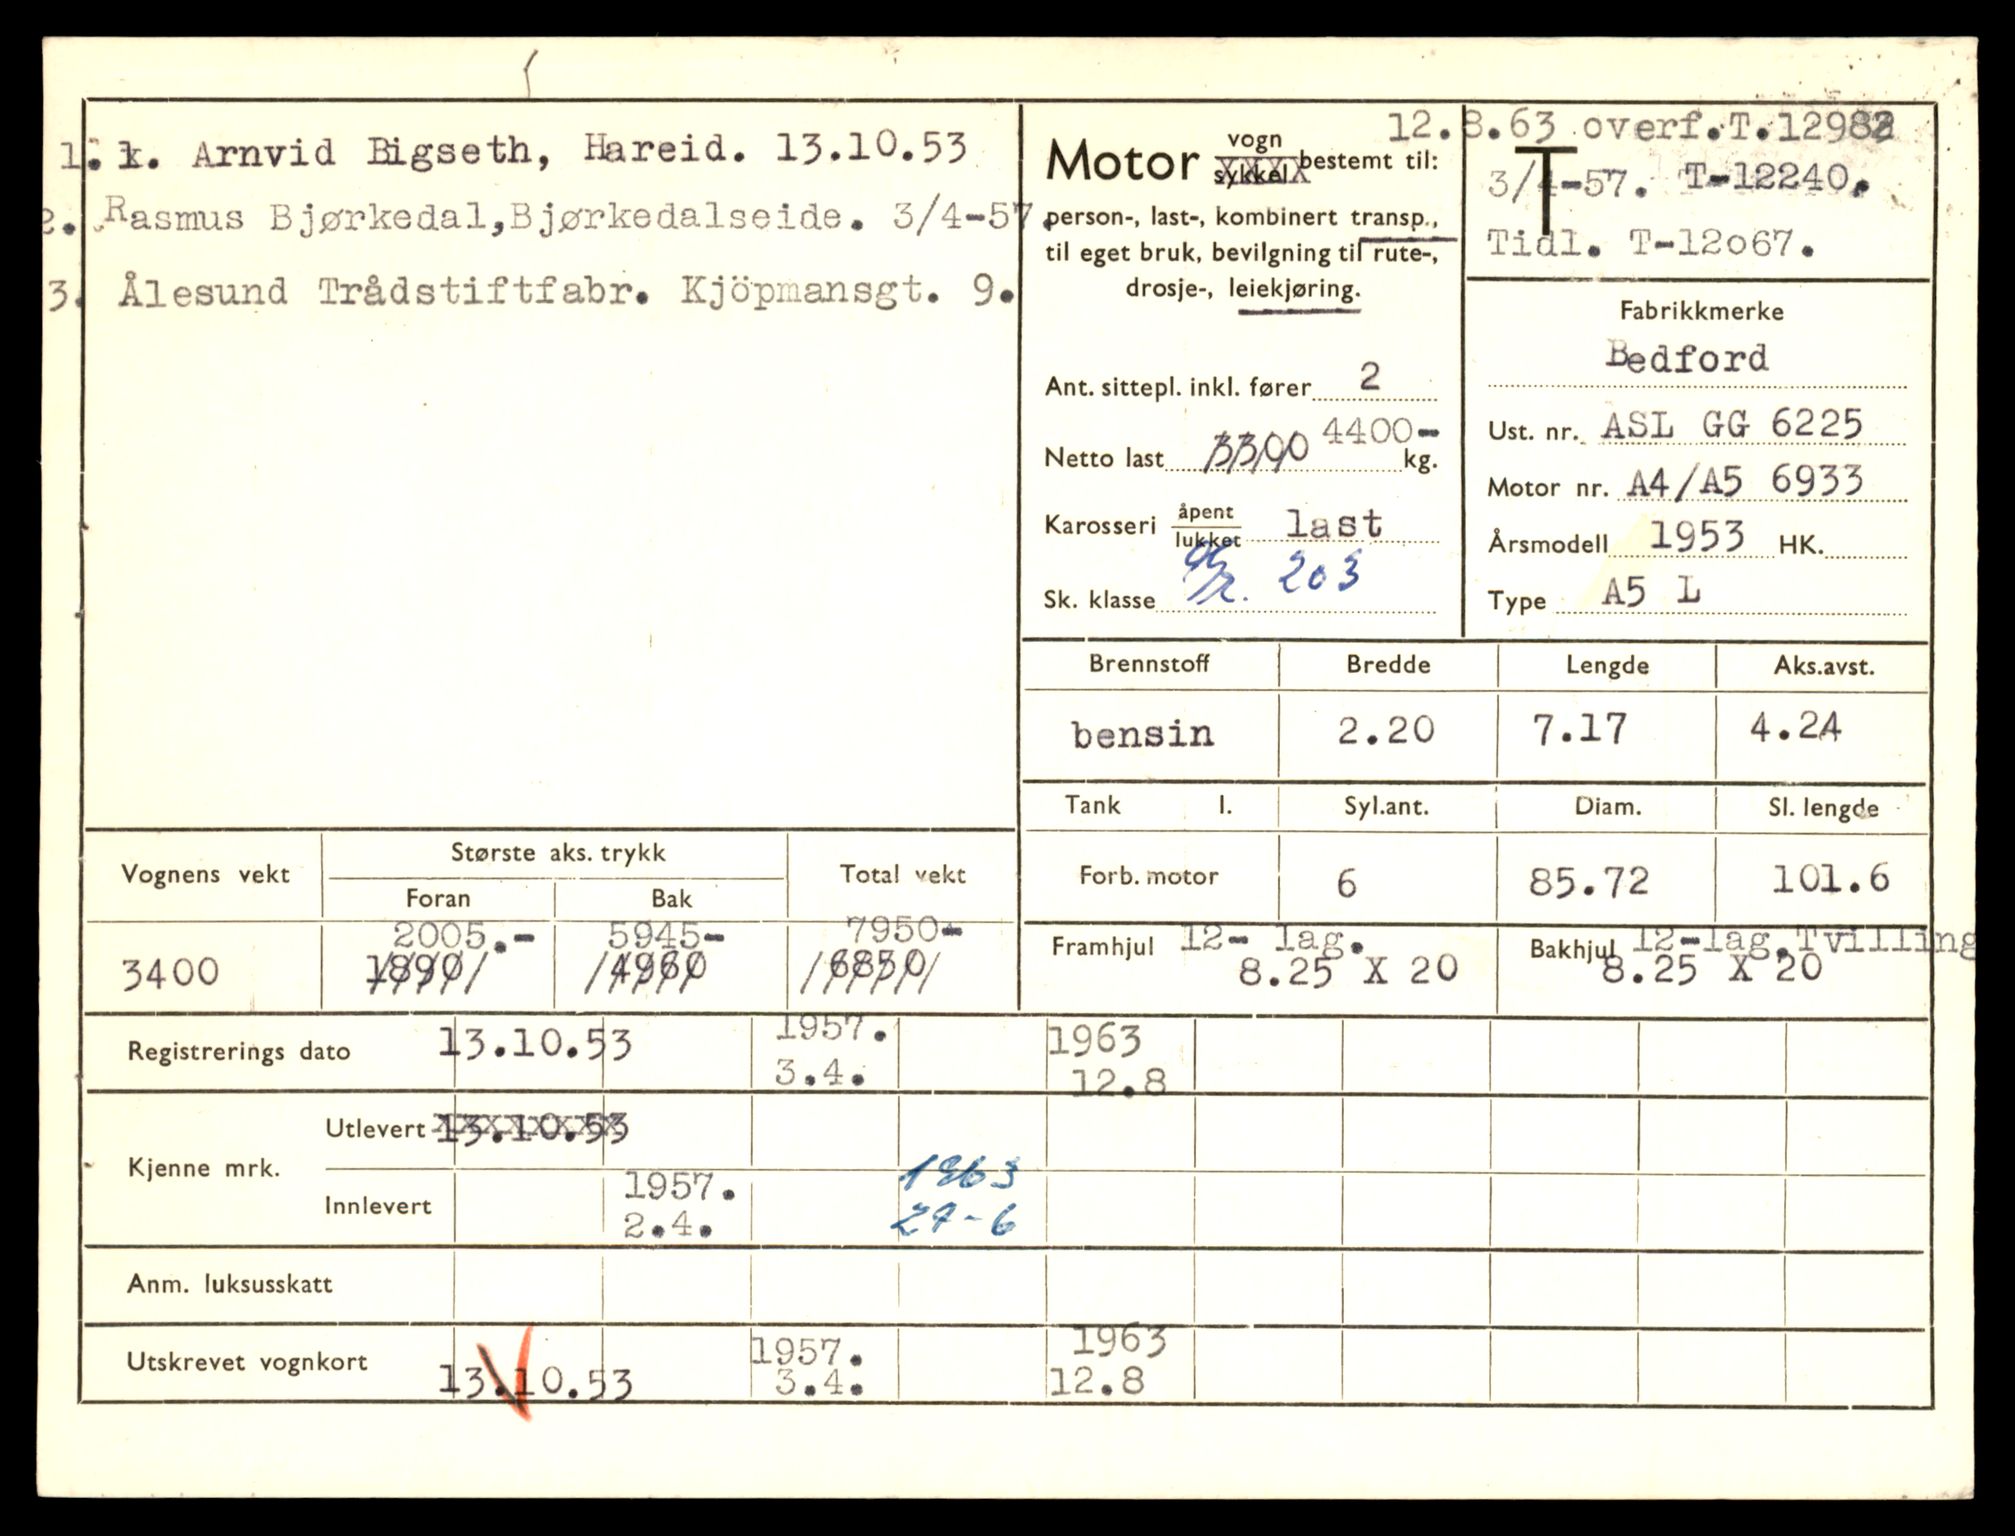 1. k. Arnvid Bigseth, Hareid. 13.10.53
2. Rasmus Bjørkedal,Bjørkedalseide. 3/4-57.
3. Ålesund Trådstiftfabr. Kjöpmansgt. 9.
Motor vogn
sykkel bestemt til:
person-, last-, kombinert transp.,
til eget bruk, bevilgning til rute-,
drosje-, leiekjøring.
Ant. sittepl. inkl. fører 2
4400-
Netto last 3300 kg.
Karosseri åpent
lukket last
Sk. klasse 203
12.8.63 overf.T.1298
T
3/4-57. T-12240.
Tidl. T-12o67.
Fabrikkmerke
Bedford
Ust. nr. ASL GG 6225
Motor nr. A4/A5 6933
Årsmodell 1953 HK.
Type A5 L
Brennstoff Bredde Lengde Aks.avst.
bensin 2.20 7.17 4.24
Tank l. Syl.ant. Diam. Sl. lengde
Forb. motor 6 85.72 101.6
Framhjul 12- lag.
8.25 X 20
Bakhjul 12-lag.Tvilling
8.25 X 20
Vognens vekt Største aks. trykk Total vekt
Foran Bak
2005.- 5945- 7950-
3400 1890 4960 6850
Registrerings dato 13.10.53 1957. 3.4. 1963 12.8
Kjenne mrk. Utlevert 13.10.53
Innlevert 1957. 2.4. 1963 27-6
Anm. luksusskatt
Utskrevet vognkort 13.10.53 1957. 3.4. 1963 12.8